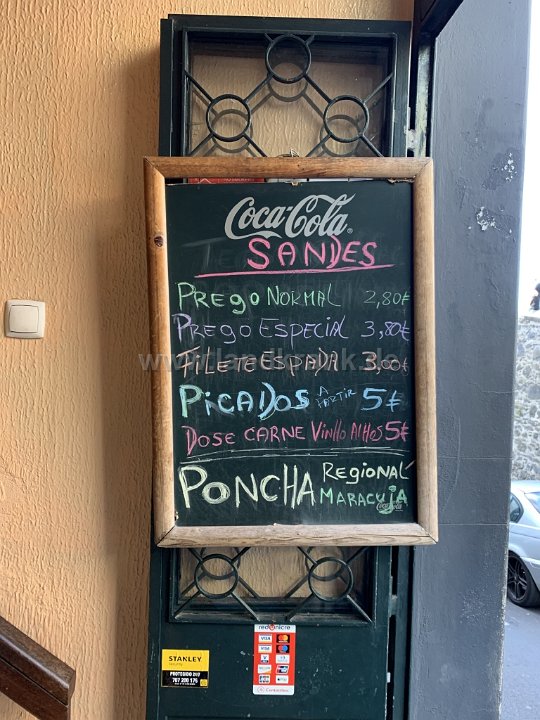 Coca-Cola
SANDES
PREGO NORMAL 2,80€
PREGO ESPECIAL 3,80€
FILETE ESPADA 3,00€
PICADOS A PARTIR 5€
DOSE CARNE VINHO ALHOS 5€
PONCHA REGIONAL
MARACUJA
Coca-Cola
redunicre
VISA
STANLEY
PROTEGIDO 24H
707 200 175
www.landkrank.de